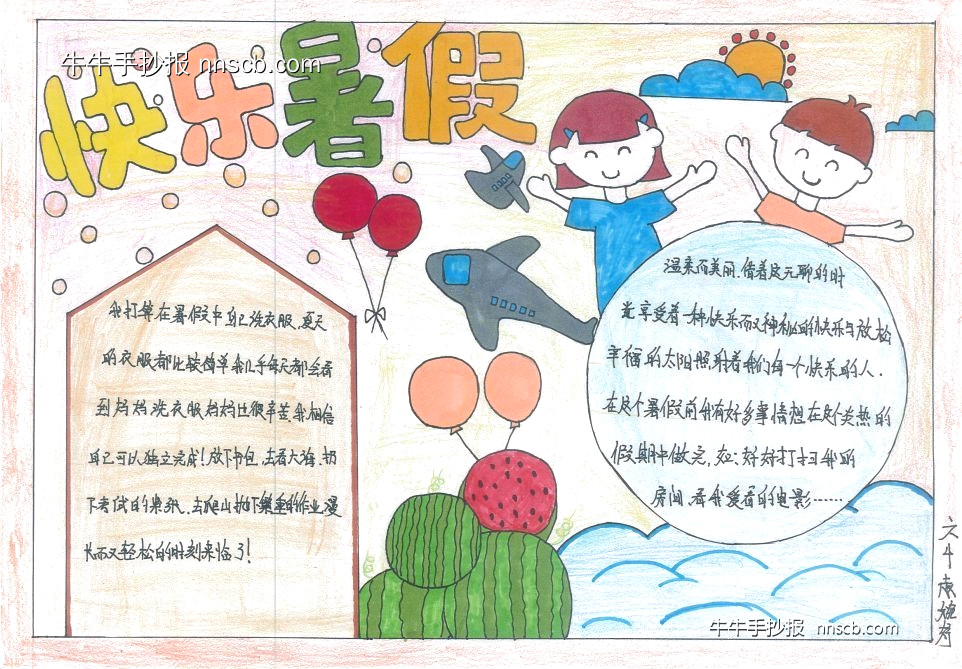 牛牛手抄报 nnscb.com
快乐暑假
我打算在暑假中自己洗衣服,夏天
的衣服都比较简单我几乎每天都会看
到妈妈洗衣服妈妈也很辛苦我相信
自己可以独立完成!放下书包,去看大海,扔
下考试的第 去爬山 抛下 的作业,漫
长而又轻松的时刻来临了!
温柔而美丽.借着这无聊的时
光享受着一种快乐而又神秘的快乐与放松
幸福的太阳照射着我们每一个快乐的人.
在这个暑假前我有好多事情想在这个炎热的
假期中做完,如:好好打扫我的
房间,看我爱看的电影……
六4
牛牛手抄报 nnscb.com